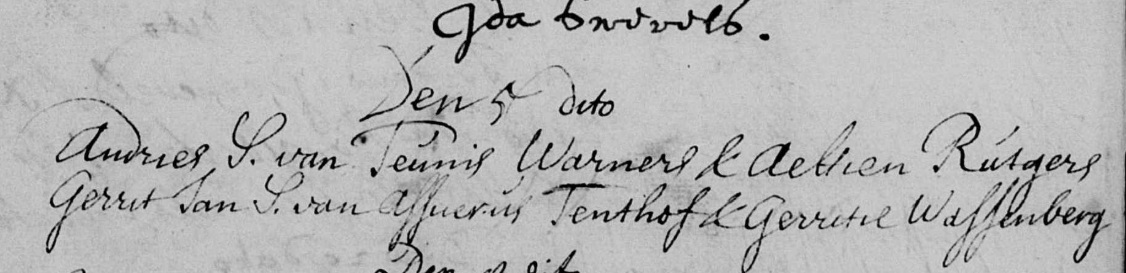 Ida
Den 5 dito
Andries S. van Teunis Warners & Aeltien Rútgers
Gerrit Jan S. van Assuerus Tenthof & Gerritie Wassenberg
Den dit